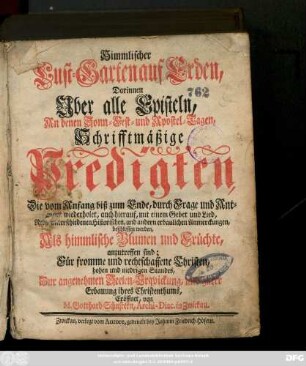 Himmlischer
Lust-Garten auf Erden,
Dorinnen
762
Uber alle Episteln,
An denen Sonn- Fest- und Apostel-Tagen,
Schrifftmäßige
Predigten
Die vom Anfang biß zum Ende, durch Frage und Ant-
wiederholet, auch hierauf, mit einem Gebet und Lied,
und andern erbaulichen Anmerckungen,
beschlossen werden,
Als himmlische Blumen und Früchte,
anzutreffen sind;
Für fromme und rechtschaffene Christen,
hohen und niedrigen Standes,
Zur angenehmen Seelen-Erquickung, und
Erbauung ihres Christenthums,
Eröffnet, von
M. Gotthard Schustern, Archi-Diac. in Zwickau.
Zwickau, verlegts der Autor, gedruckt bey Johann Friedrich Höfern.